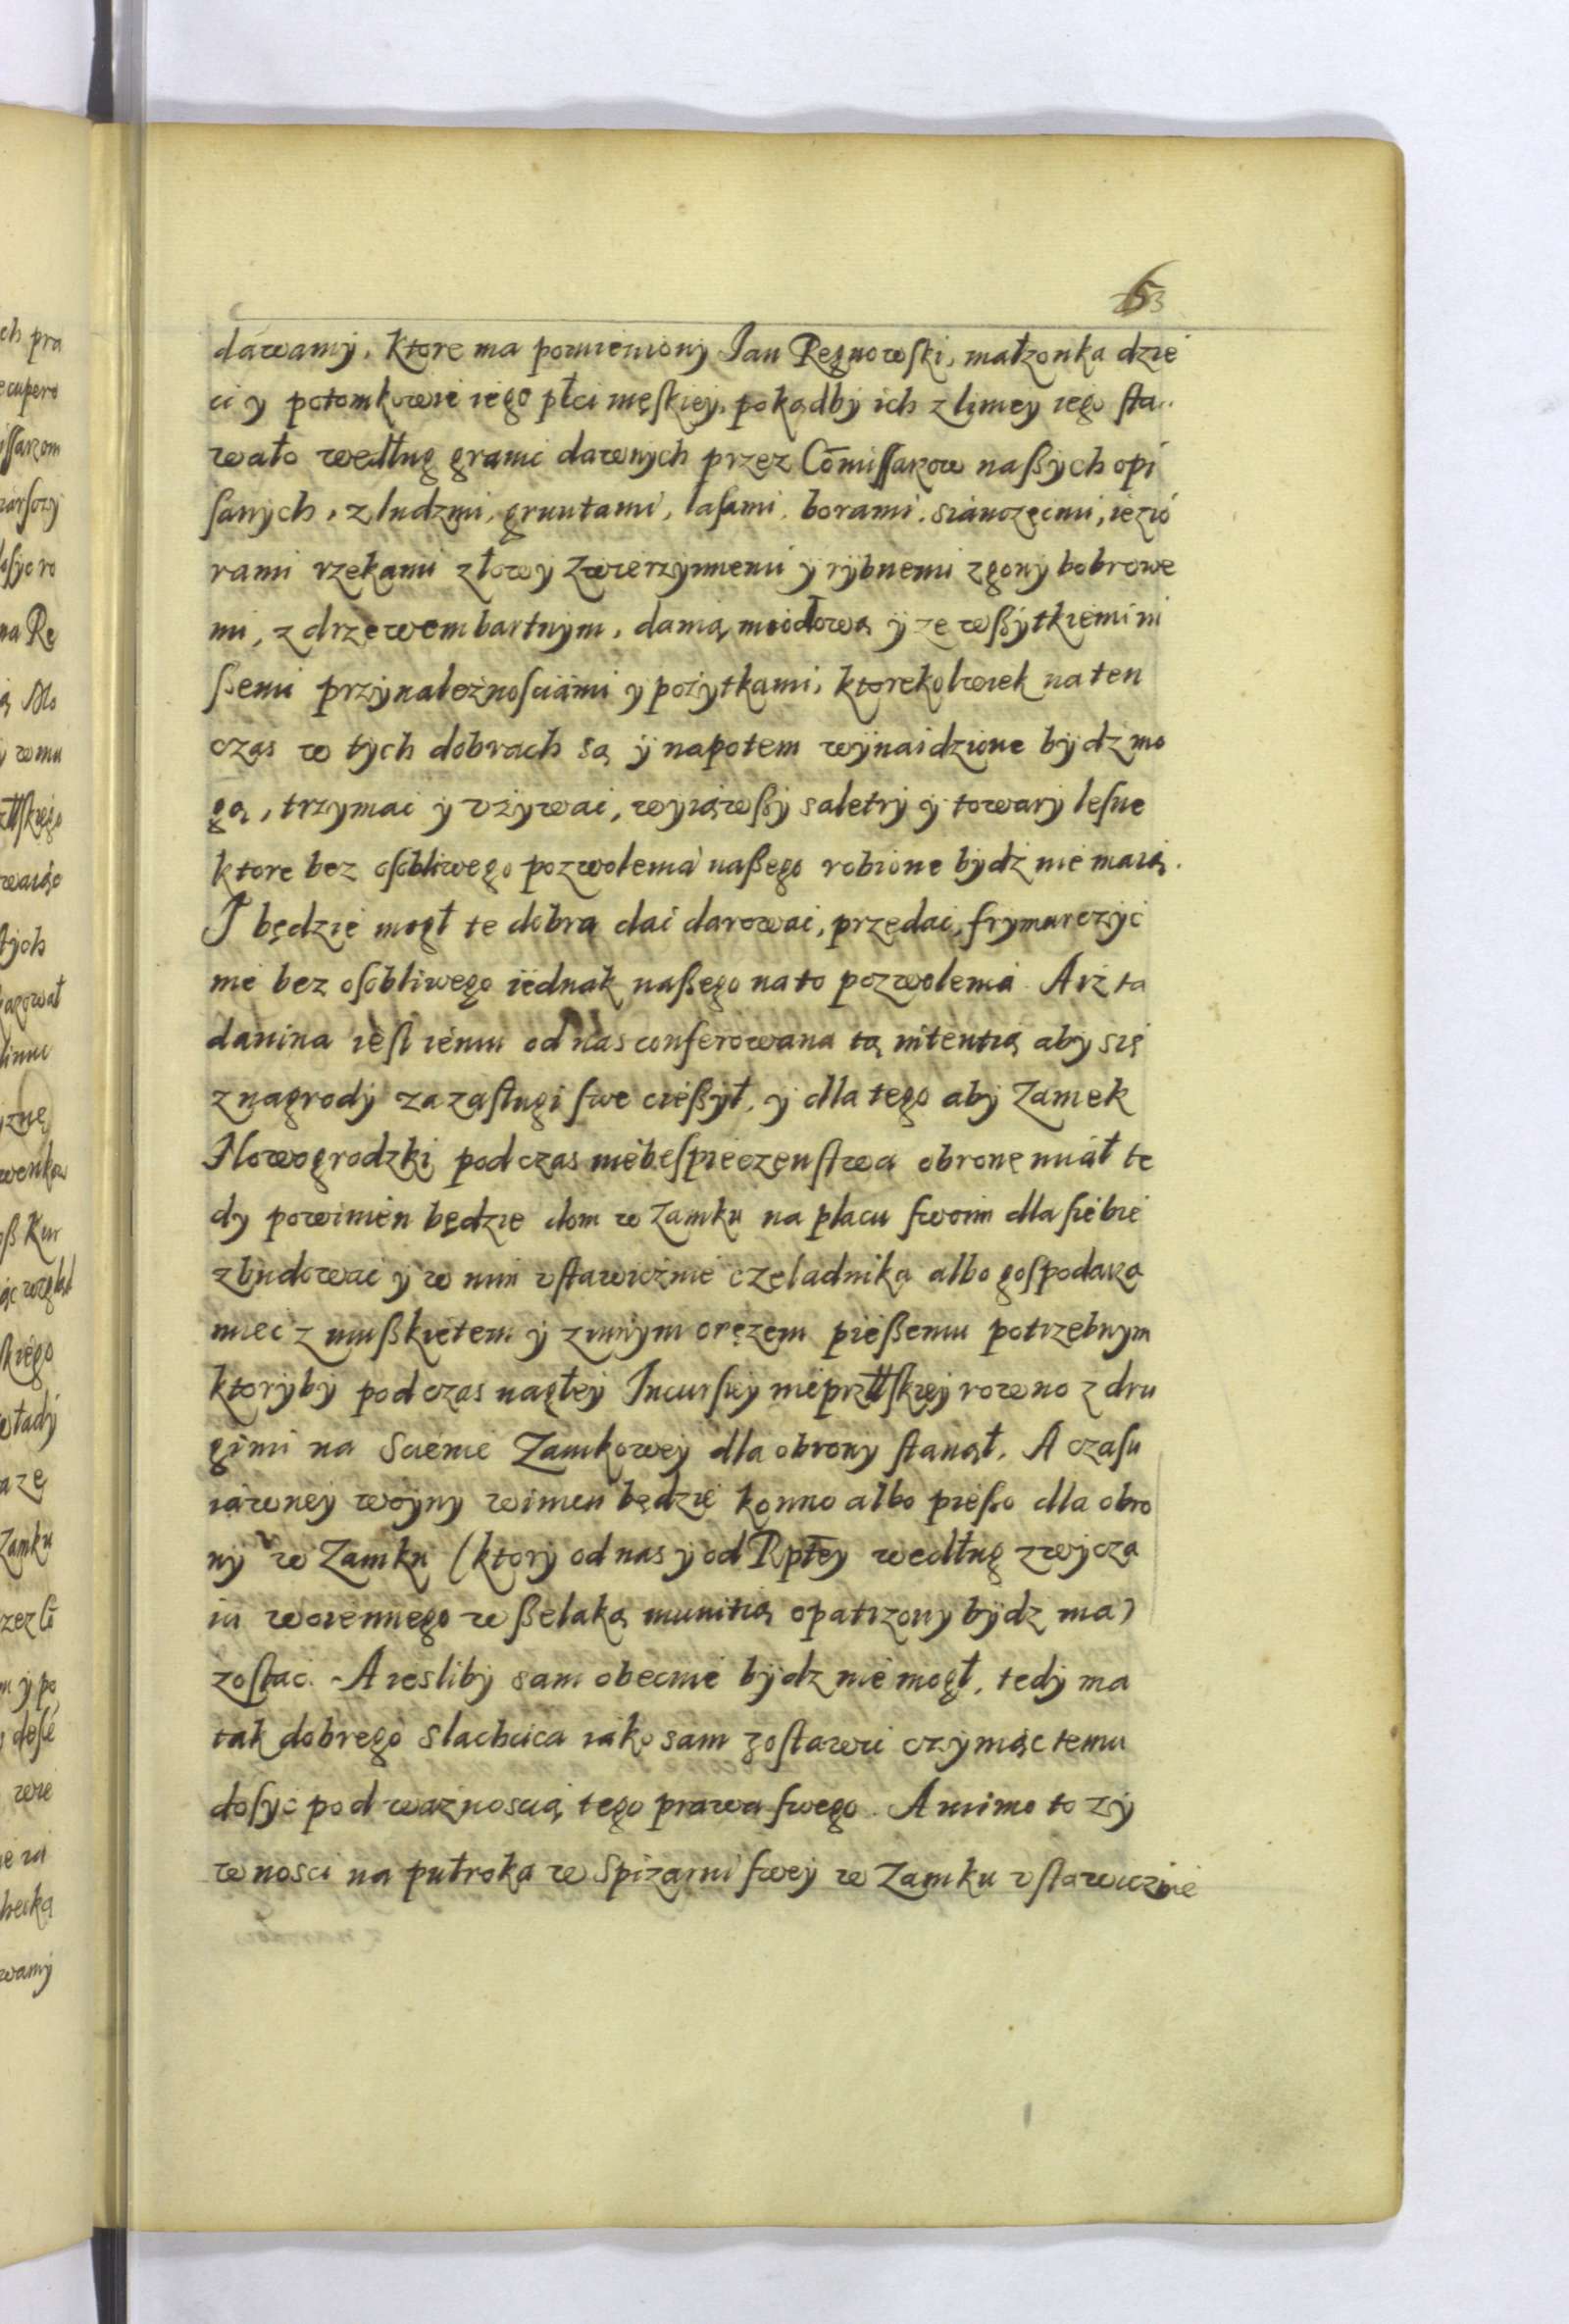 dawamy, Ktore ma pomieniony Jan Regnowski, małzonka dzie
ci y potomkowie iego płci męskiey, pokądby ich z liniey iego sta
wało według granic dawnych przez Cōmissarzow naßych opi
sanych, z ludzmi, gruntami, lasami, borami, sianozęcmi, iezio
rami rzekami z łowy zwierzynnemi y rybnemi z gony bobrowe
mi, z drzewem bartnym, danią miodową y ze wßytkiemi ni
ßemi przynależnosciami y pożytkami, ktorekolwiek na ten
czas w tych dobrach są y napotem wynaidzione bydz mo
gą, trzymac y vżywac, wyiąwßy saletry y towary lesne
ktore bez osobliwego pozwolenia naßego robione bydź nie maią.
I będzie mogł te dobra dac darowac, przedac, frymarczyc
nie bez osobliwego iednak naßego na to pozwolenia. A iż ta
danina iest iemu od nas conferowana tą intentią aby się
z nagrody za zasługi swe cießył, y dla tego aby Zamek
Nowogrodzki pod czas niebespieczenstwa obronę miał te
dy powinien będzie dom w Zamku na placu swoim dla siebie
zbudowac y w nim vstawicznie czeladnika albo gospodarza
miec z mußkietem y z innym orężem pießemu potrzebnym
ktoryby pod czas nagłey Incursiey nieprzÿłskiey rowno z dru
gimi na Scienie Zamkowey dla obrony stanął. A czasu
iawney woyny winien będzie konno albo pießo dla obro
ny w Zamku (ktory od nas y od Rptey według zwycza
iu woiennego wßelaką munitią opatrzony bydz ma)
zostac. A iesliby sam obecnie bydz nie mogł, tedy ma
tak dobrego slachcica iako sam zostawic czyniąc temu
dosyc pod ważnoscią tego prawa swego. A mimo to ży
wnosci na pułroka w Spiżarni swey w Zamku vstawicznie